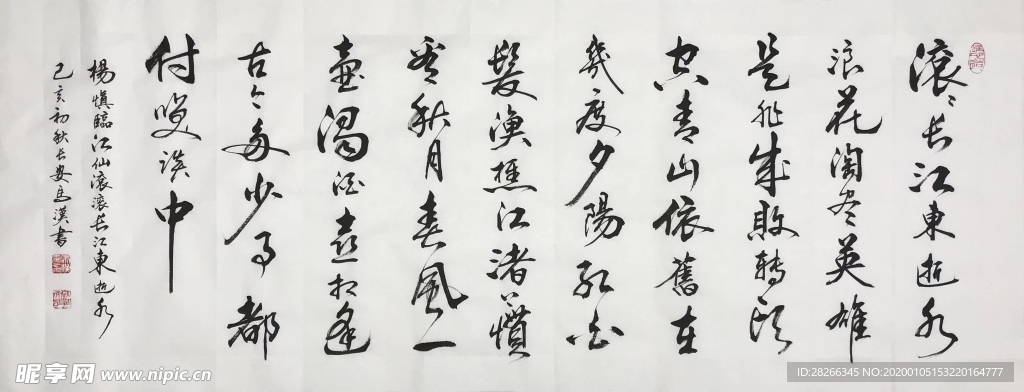 滚々长江東逝水
浪花淘尽英雄
是非成敗转头
空青山依舊在
幾度夕陽红白
髮渔樵江渚上慣
看秋月春風一
壶濁酒喜相逢
古今多少事都
付笑谈中
楊慎臨江仙滚滚长江東逝水
己亥初秋长安马漢書
昵享网 www.nipic.cn
ID:28266345 NO:20200105153220164777